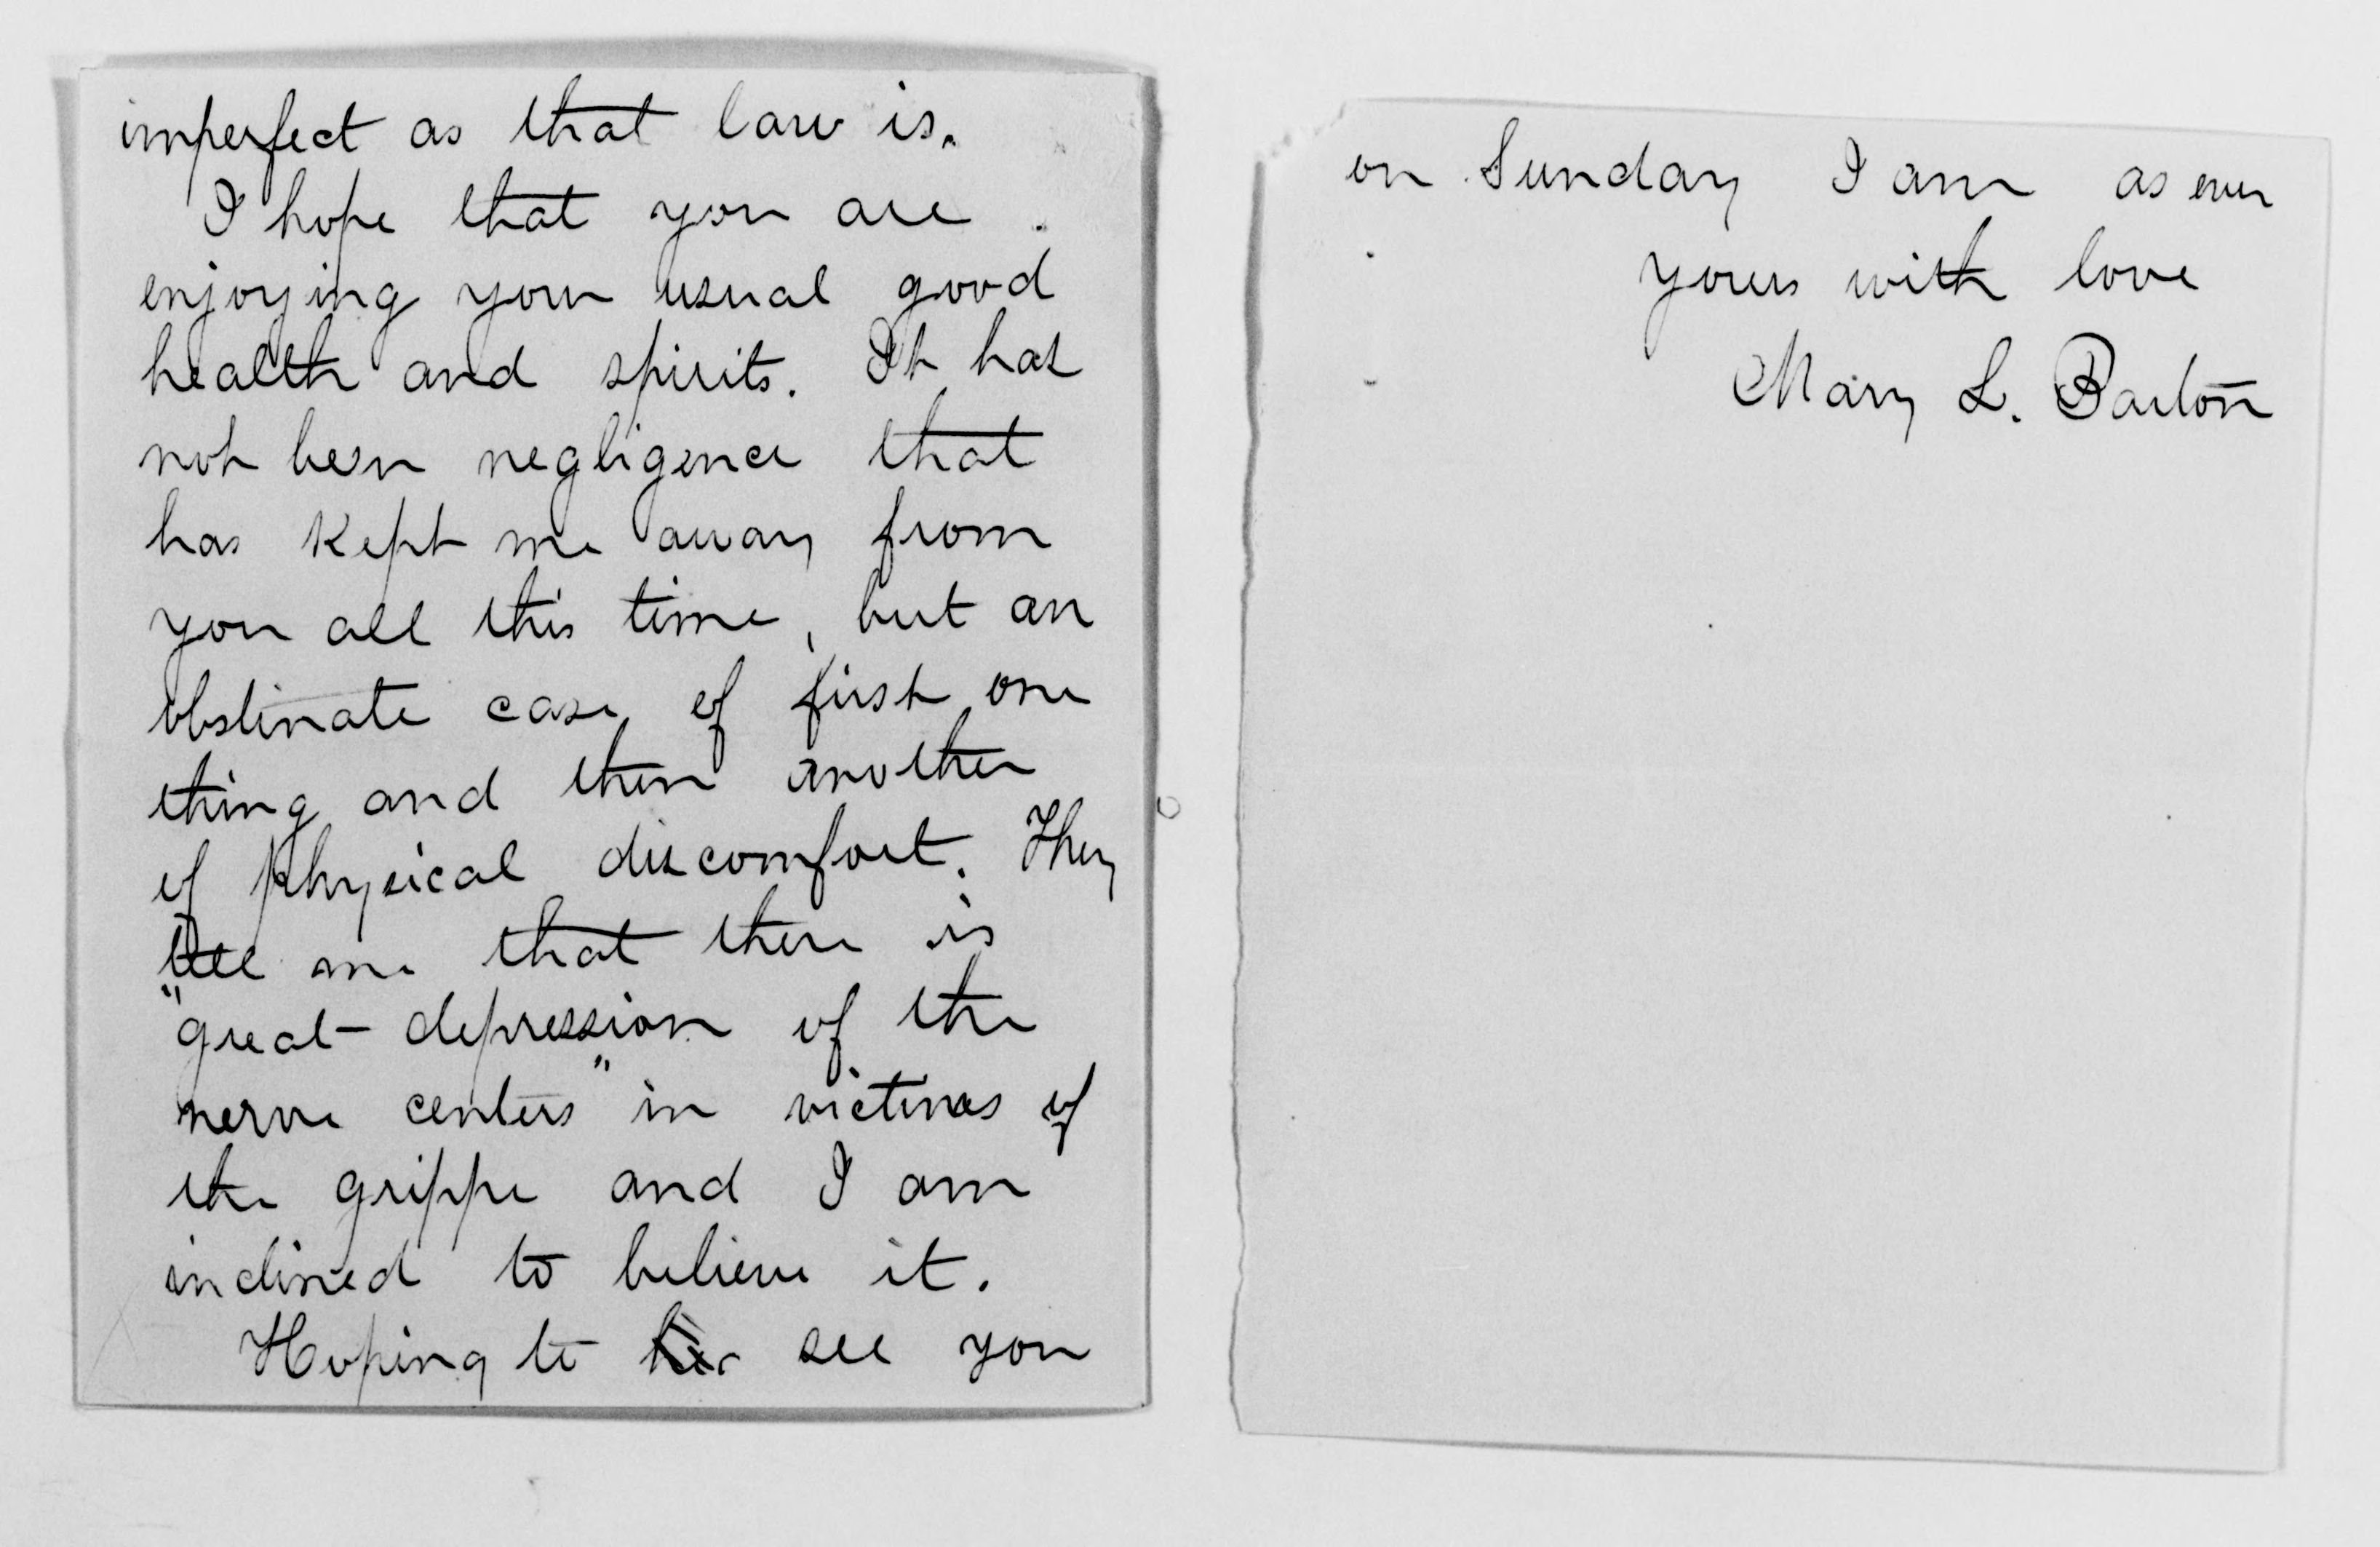 imperfect as that law is.
I hope that you are
enjoying your usual good
health and spirits. It has
not been negligence that
has kept me away from
you all this time, but an
obstinate case of first one
thing and then another
of physical discomfort. They
tell me that there is
"great depression of the
nerve centers" in victims of
the grippe and I am
inclined to believe it.
Hoping to see you
on Sunday I am as ever
yours with love
Mary L. Barton